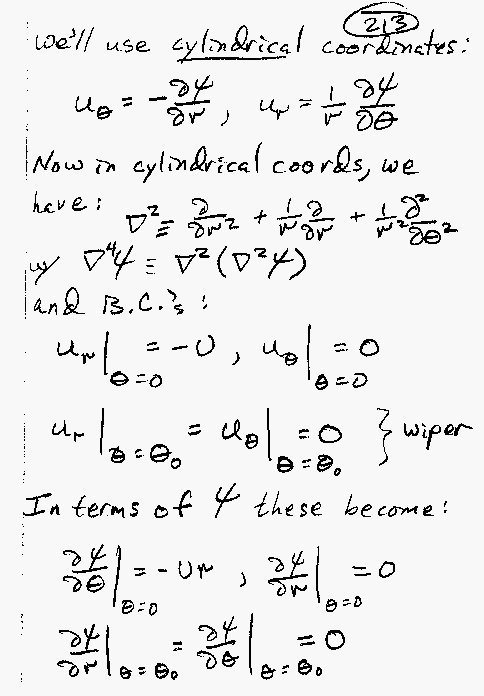 213
we'll use cylindrical coordinates:
u_θ = -∂ψ/∂r , u_r = 1/r ∂ψ/∂θ
Now in cylindrical coords, we
have: ∇² ≡ ∂/∂r² + 1/r ∂/∂r + 1/r² ∂²/∂θ²
w/ ∇⁴ψ ≡ ∇²(∇²ψ)
and B.C.'s :
u_r|_θ=0 = -U , u_θ|_θ=0 = 0
u_r|_θ=θ₀ = u_θ|_θ=θ₀ = 0 } wiper
In terms of ψ these become:
∂ψ/∂θ|_θ=0 = -Ur , ∂ψ/∂r|_θ=0 = 0
∂ψ/∂r|_θ=θ₀ = ∂ψ/∂θ|_θ=θ₀ = 0